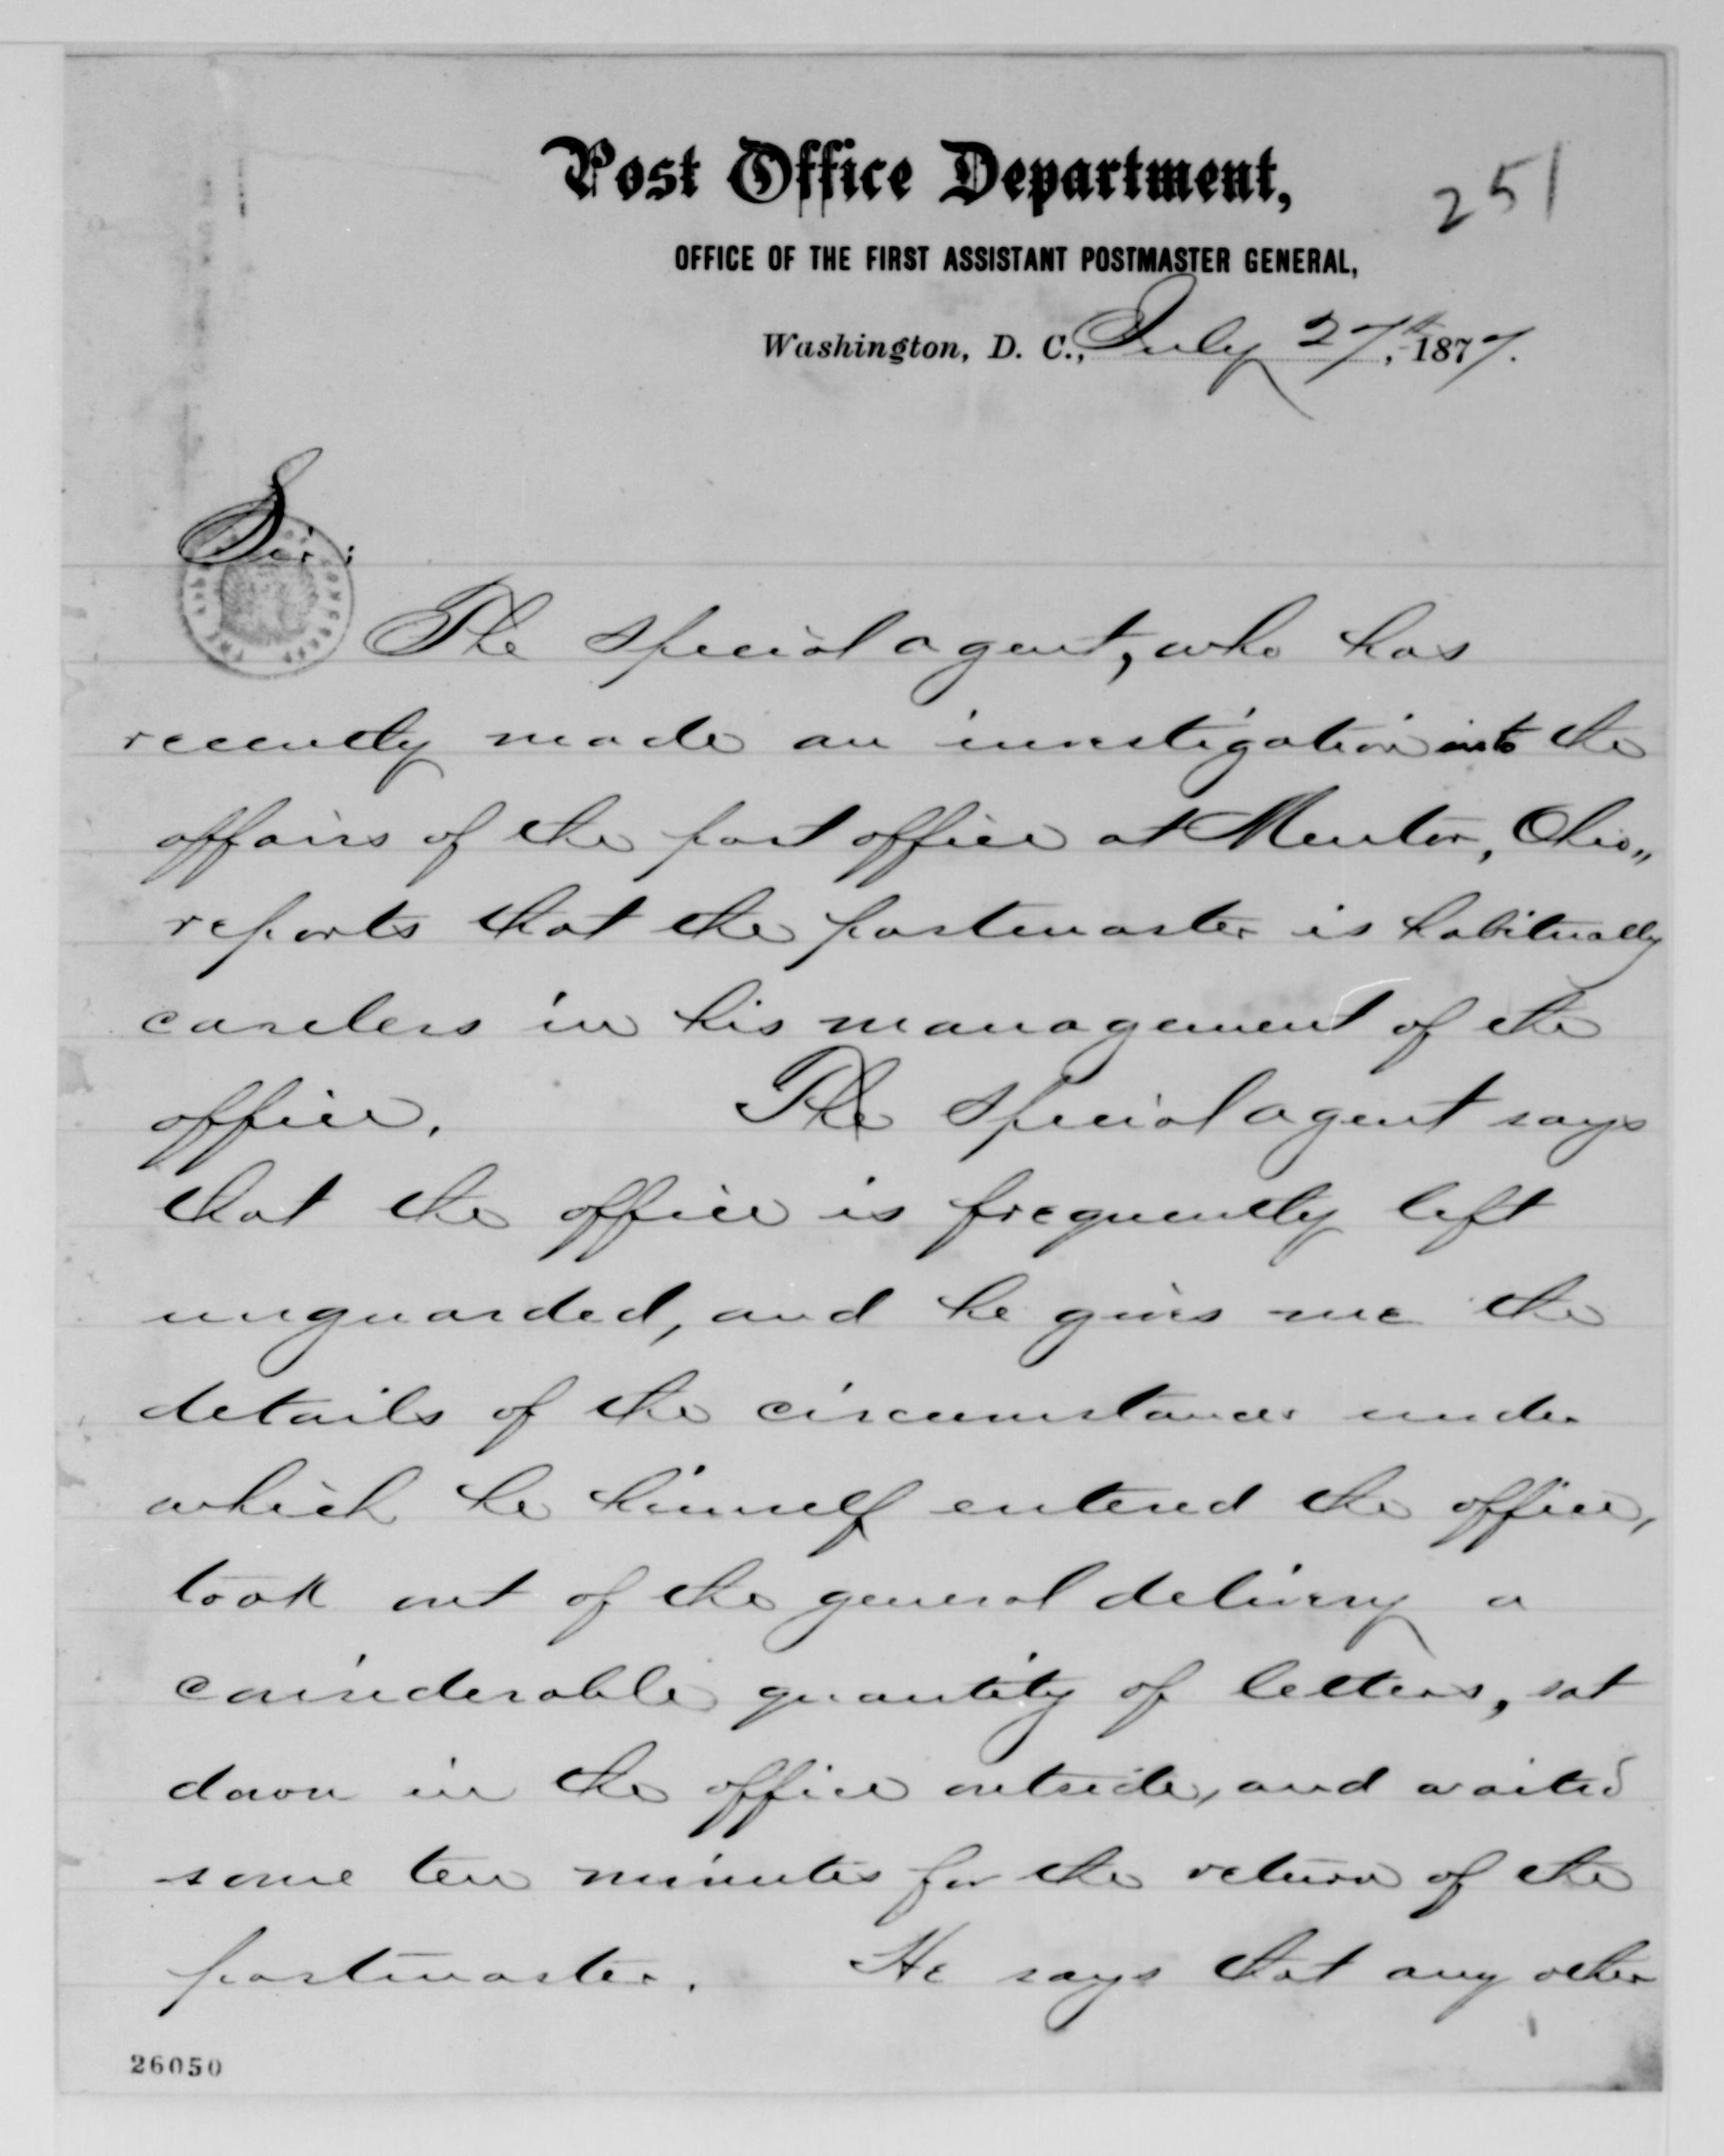 Post Office Department,
251
OFFICE OF THE FIRST ASSISTANT POSTMASTER GENERAL,
Washington, D. C., July 27th, 1877.
Sir:
The special agent, who has
recently made an investigation into the
affairs of the post office at Mentor, Ohio,,
reports that the postmaster is habitually
careless in his management of the
office. The special agent says
that the office is frequently left
unguarded, and he gives me the
details of the circumstances under
which he himself entered the office,
took out of the general delivery a
considerable quantity of letters, sat
down in the office outside, and waited
some ten minutes for the return of the
postmaster. He says that any other
26050